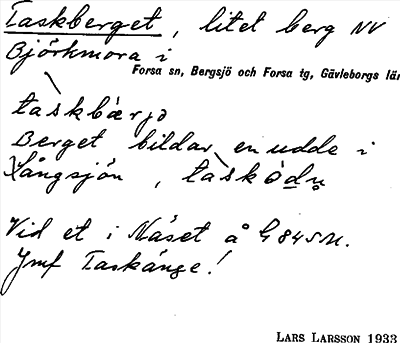 Taskberget, litet berg NV
Björkmora i
Forsa sn, Bergsjö och Forsa tg, Gävleborgs län
taskbærjə
Berget bildar en udde i
Långsjön, taskòdn̥
Vid et i Näset å G 84 S M.
Jmf Taskänge!
LARS LARSSON 1933